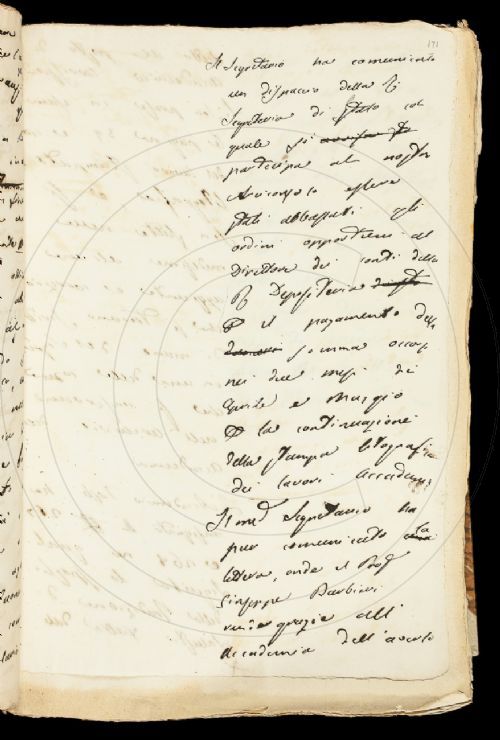 171
Il Segretario ha comunicato
un dispaccio della R.
Segreteria di Stato col
quale si
partecipa al nostro
Arciconsolo essere
stati abbassati gli
ordini opportuni al
Direttore dei conti della
R. Depositeria
il pagamento della
somma occors
nei due mesi di
Aprile e Maggio
la continuazione
della stampa litografica
dei lavori Accademi
Il med Segretario ha
pur comunicato la
lettera, onde il Prof
Giuseppe Barbieri
rende grazie all'
Accademia dell'averlo